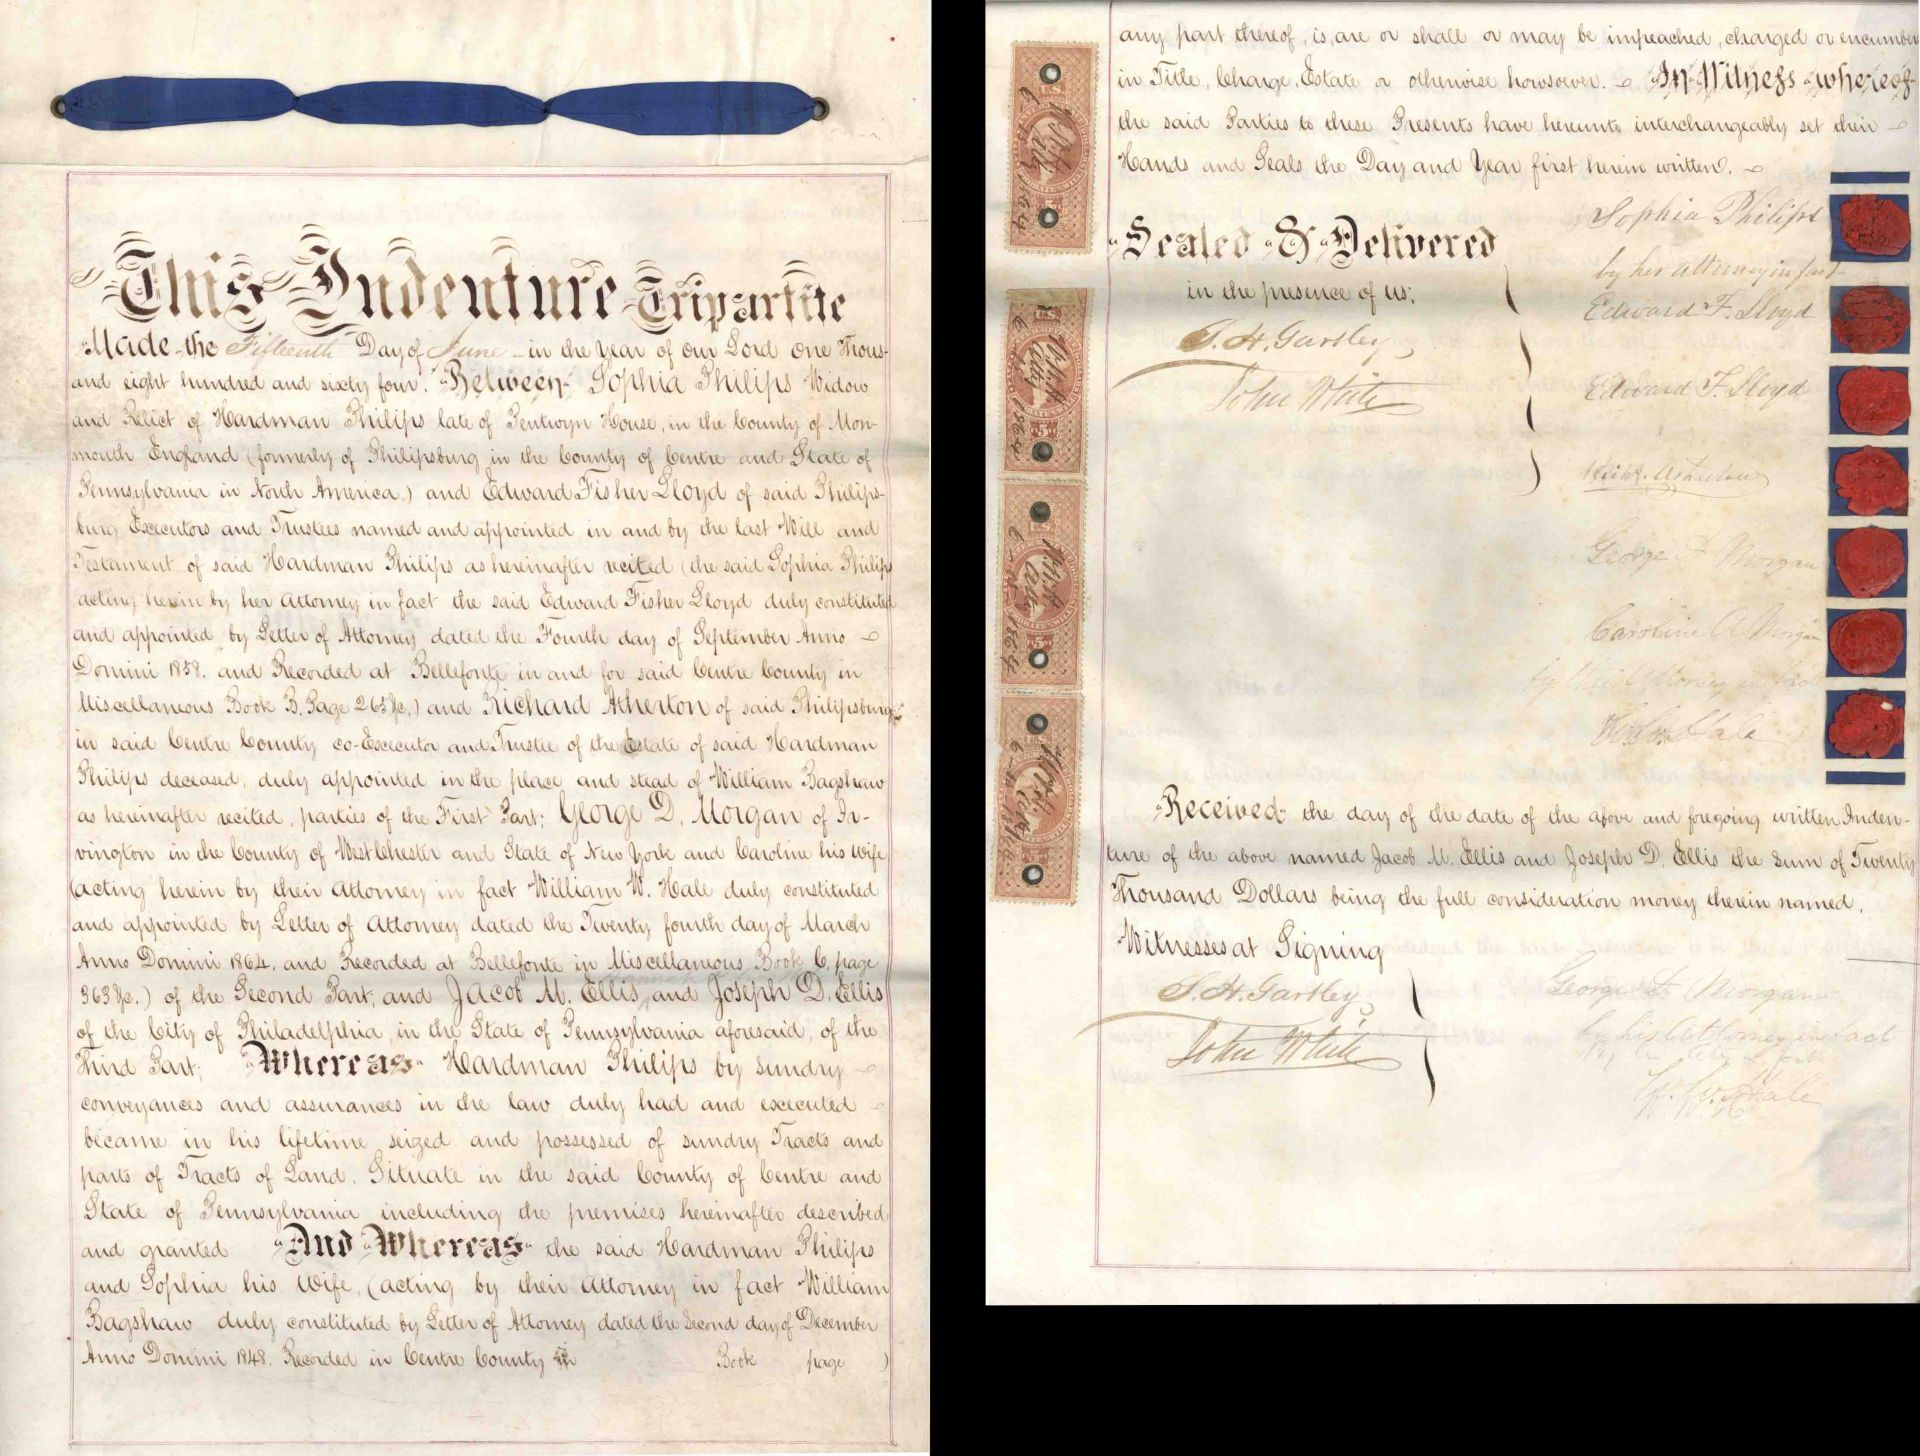 This Indenture Tripartite
Made the Fifteenth Day of June in the Year of our Lord One Thous-
and eight hundred and sixty four. Between Sophia Philips Widow
and Relict of Hardman Philips late of Pentwyn House, in the County of Mon-
mouth England (formerly of Philipsburg in the County of Centre and State of
Pennsylvania in North America) and Edward Fisher Lloyd of said Philips-
burg Executors and Trustees named and appointed in and by the last Will and
Testament of said Hardman Philips as hereinafter recited (the said Sophia Philips
acting herein by her Attorney in fact the said Edward Fisher Lloyd duly constituted
and appointed by Letter of Attorney dated the Fourth day of September Anno
Domini 1858. and Recorded at Bellefonte in and for said Centre County in
Miscellaneous Book B. Page 265 &c.) and Richard Atherton of said Philipsburg
in said Centre County co-Executor and Trustee of the Estate of said Hardman
Philips deceased, duly appointed in the place and stead of William Bagshaw
as hereinafter recited, parties of the First Part; George D. Morgan of Ir-
vington in the County of West Chester and State of New York and Caroline his Wife
(acting herein by their Attorney in fact William W. Hale duly constituted
and appointed by Letter of Attorney dated the Twenty fourth day of March
Anno Domini 1864. and Recorded at Bellefonte in Miscellaneous Book C. page
363 &c.) of the Second Part; and Jacob M. Ellis, and Joseph D. Ellis
of the City of Philadelphia, in the State of Pennsylvania aforesaid, of the
Third Part; Whereas Hardman Philips by sundry
conveyances and assurances in the law duly had and executed
became in his lifetime seized and possessed of sundry Tracts and
parts of Tracts of Land, Situate in the said County of Centre and
State of Pennsylvania including the premises hereinafter described
and granted And Whereas the said Hardman Philips
and Sophia his Wife, (acting by their Attorney in fact William
Bagshaw duly constituted by Letter of Attorney dated the Second day of December
Anno Domini 1848. Recorded in Centre County in Book page )
any part thereof, is, are or shall or may be impeached, charged or encumber
in Title, Charge, Estate or otherwise howsoever. In Witness whereof
the said Parties to these Presents have hereunto interchangeably set their
Hands and Seals the Day and Year first herein written.
Sealed & Delivered
in the presence of us;
S. H. Gartley
John White
Sophia Philips
by her attorney in fact
Edward F. Lloyd
Edward F. Lloyd
Richd. Atherton
George D Morgan
Caroline A Morgan
by their Attorney in fact
W. W. Hale
Received the day of the date of the above and foregoing written Inden-
ture of the above named Jacob M. Ellis and Joseph D. Ellis the Sum of Twenty
Thousand Dollars being the full consideration money therein named.
Witnesses at Signing
S. H. Gartley
John White
George D Morgan
by his Attorney in fact
W. W. Hale